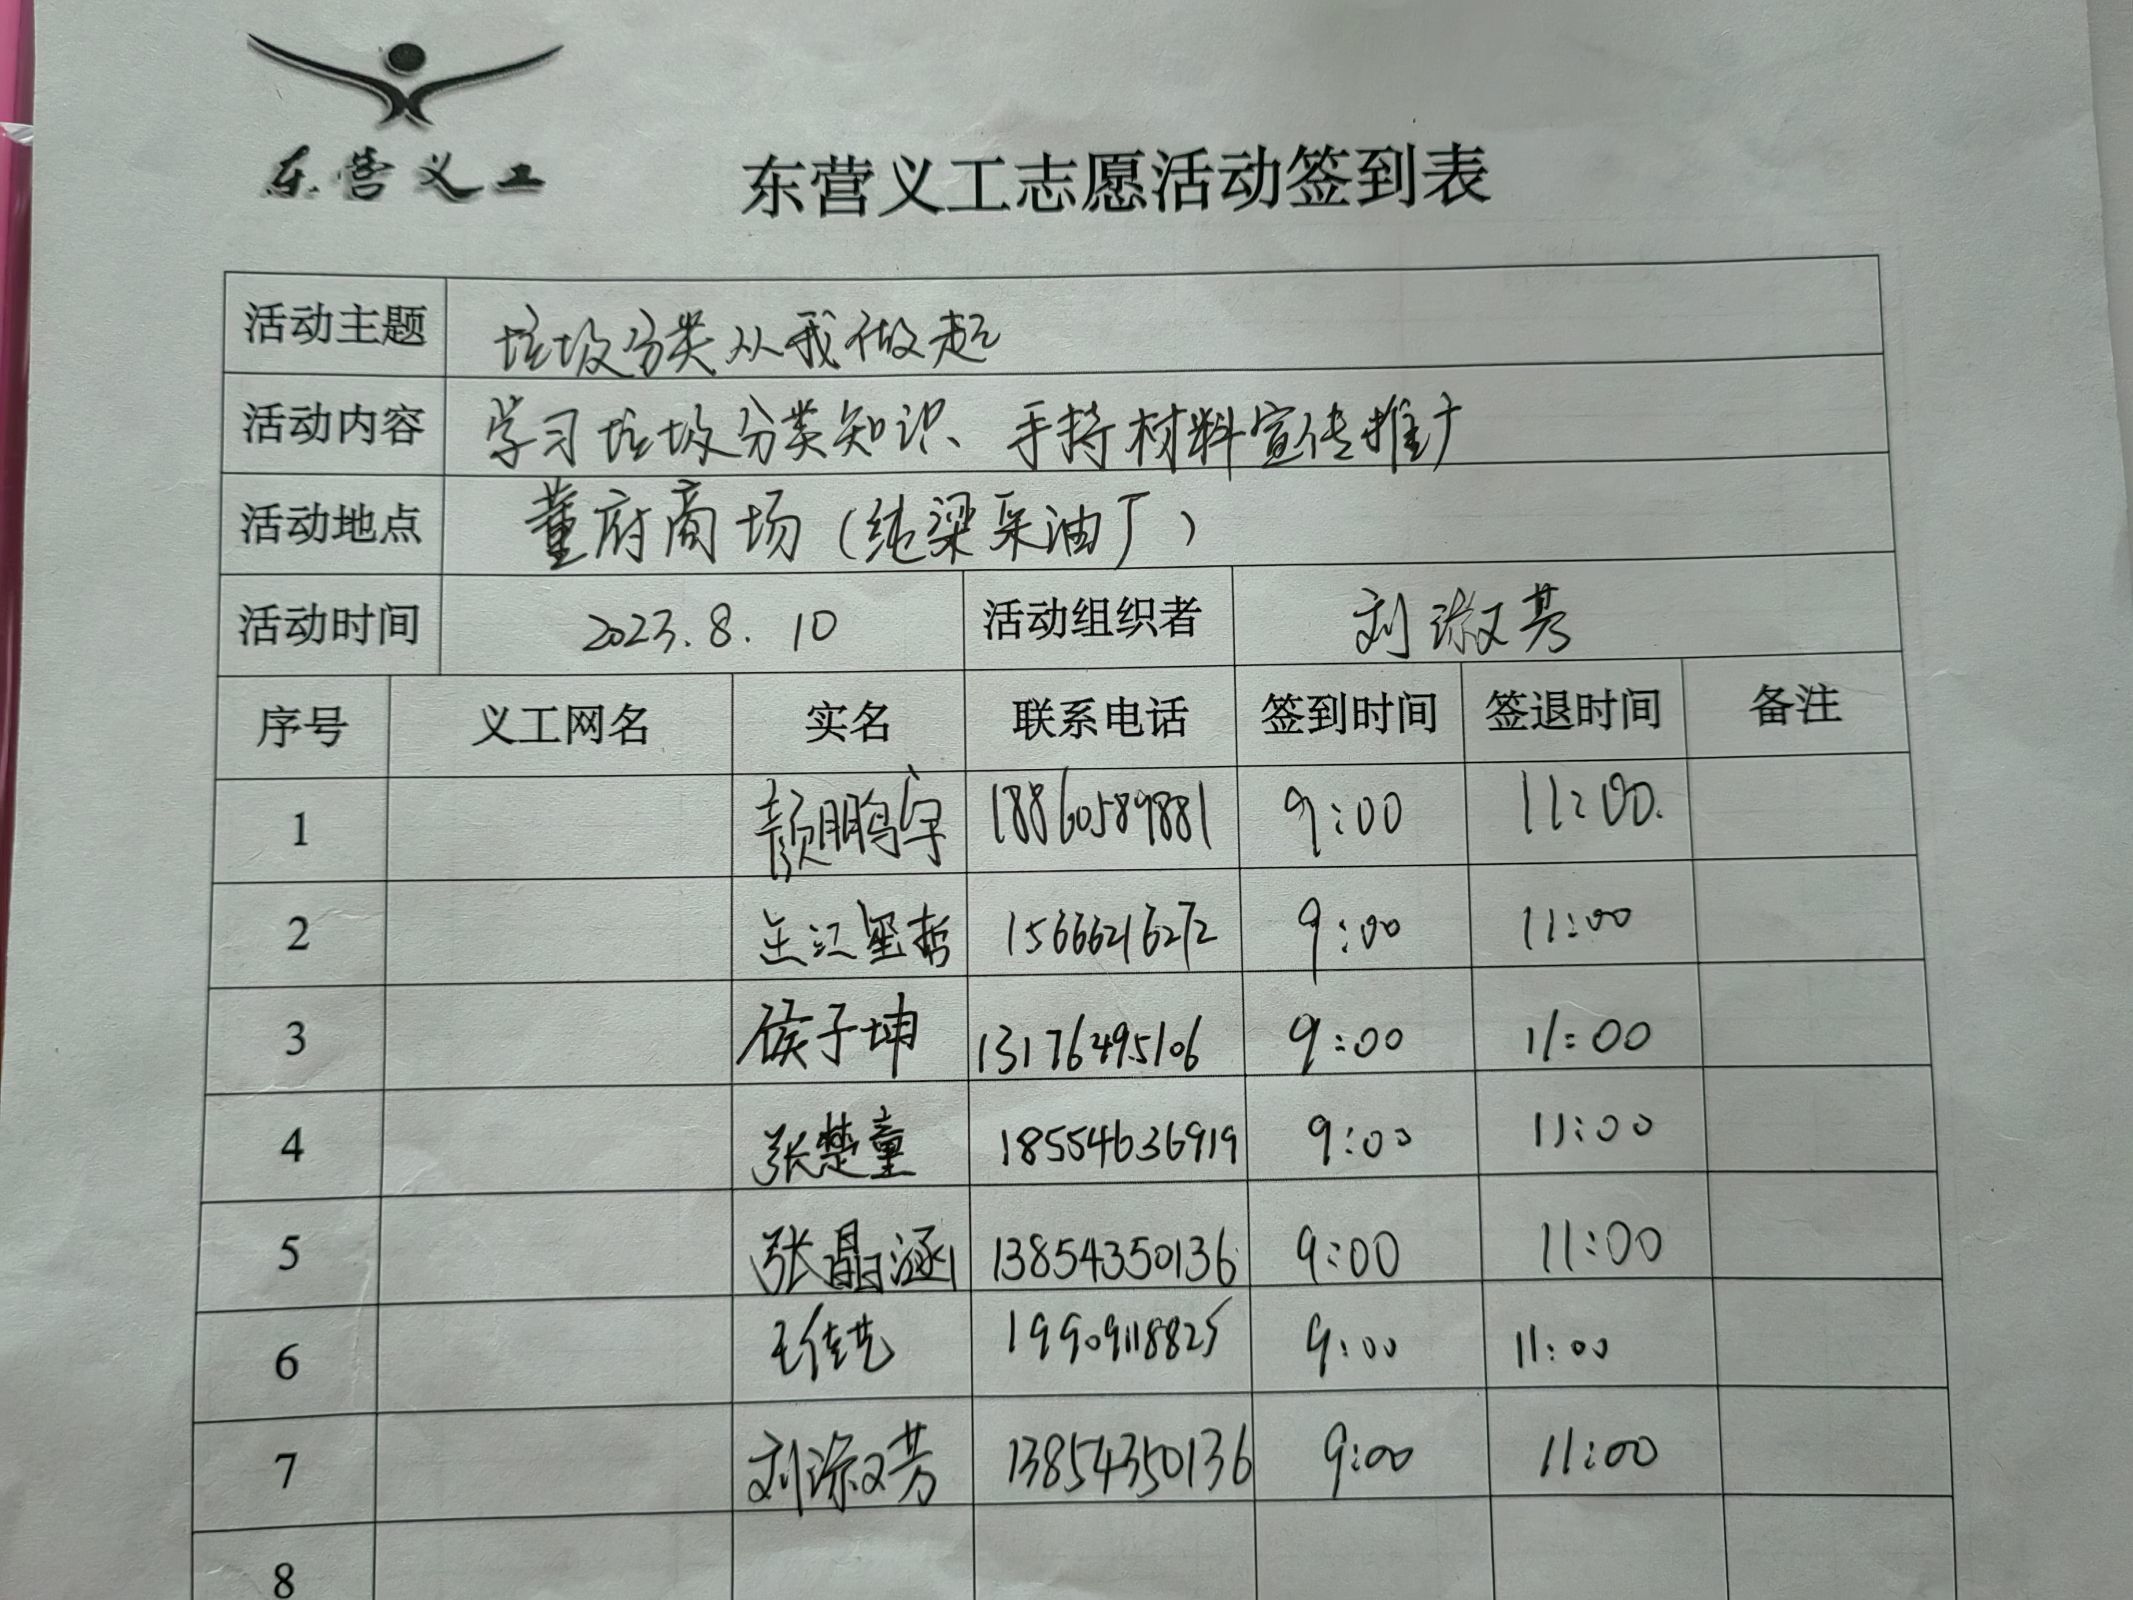 东营义工
东营义工志愿活动签到表
活动主题 垃圾分类从我做起
活动内容 学习垃圾分类知识、手持材料宣传推广
活动地点 董府商场（纯梁采油厂）
活动时间 2023.8.10 活动组织者 刘淑芳
序号 义工网名 实名 联系电话 签到时间 签退时间 备注
1 颜鹏宇 18860589881 9:00 11:00
2 15666216272 9:00 11:00
3 侯子坤 13176495106 9:00 11:00
4 张楚童 18554636919 9:00 11:00
5 张晶涵 13854350136 9:00 11:00
6 王佳艺 19909118825 9:00 11:00
7 刘淑芳 13854350136 9:00 11:00
8